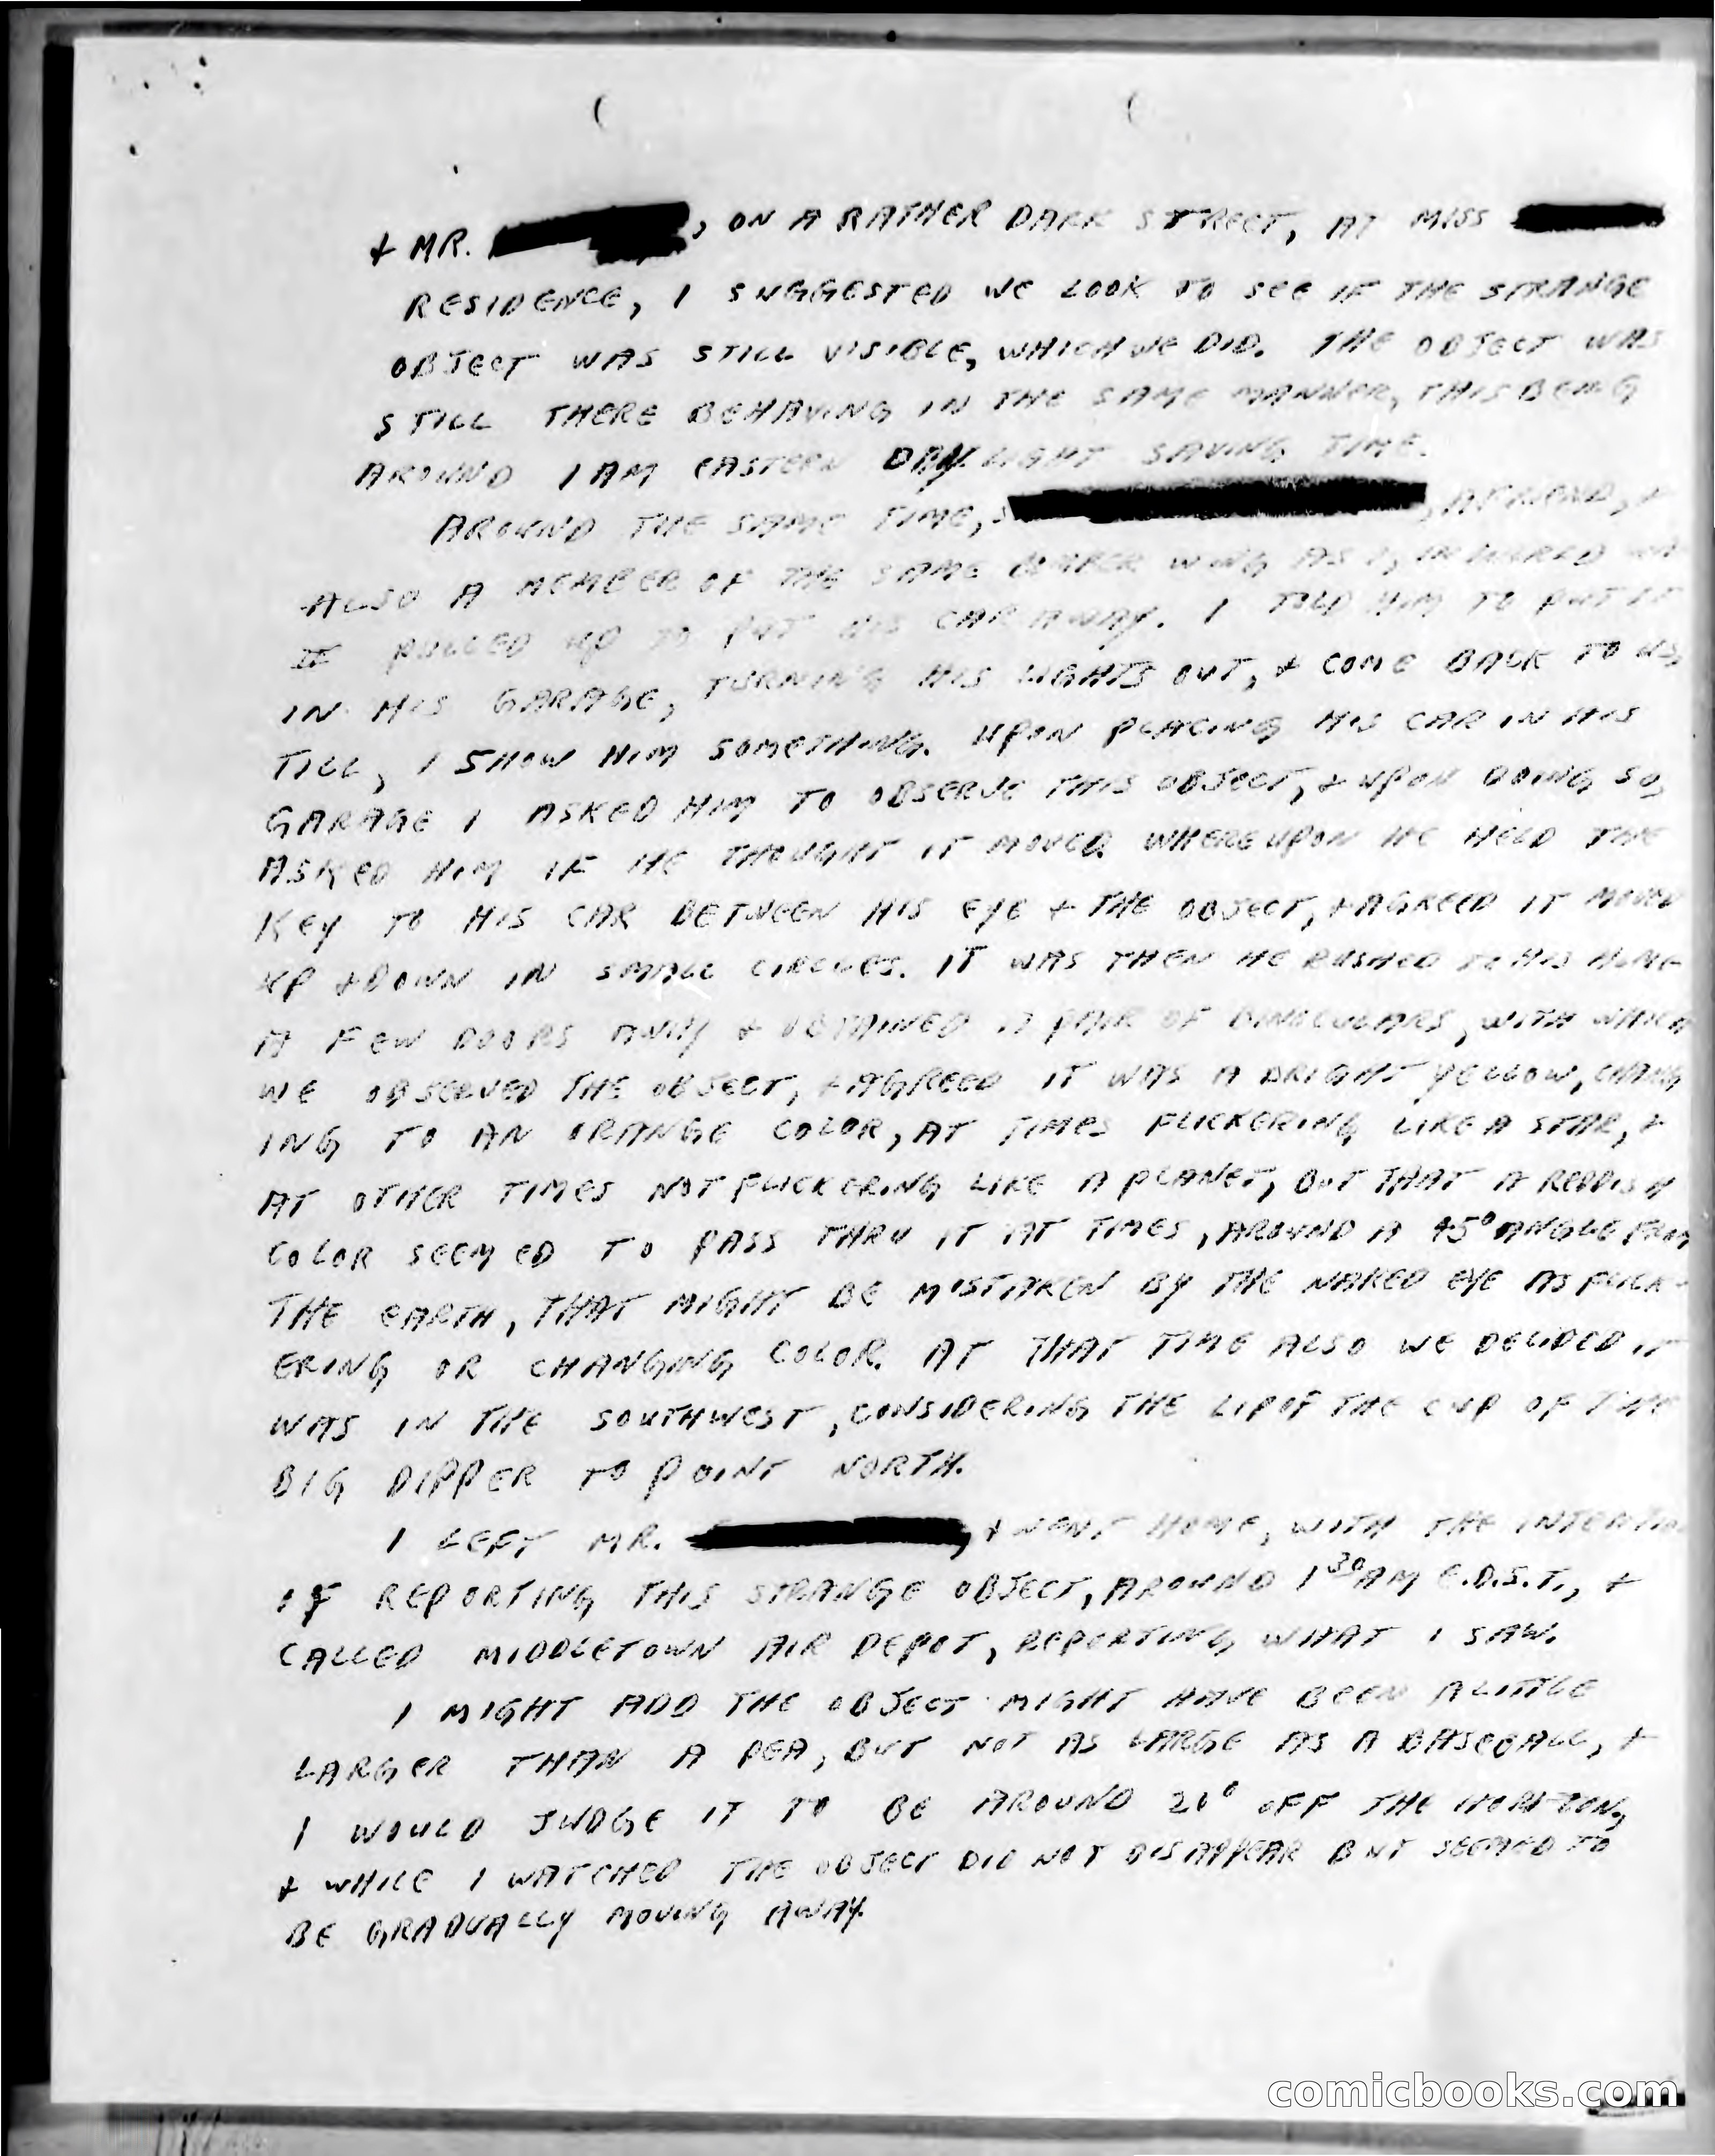 + MR. , ON A RATHER DARK STREET, AT MISS
RESIDENCE, I SUGGESTED WE LOOK TO SEE IF THE STRANGE
OBJECT WAS STILL VISIBLE, WHICH WE DID. THE OBJECT WAS
STILL THERE BEHAVING IN THE SAME MANNER, THIS BEING
AROUND 1 AM EASTERN DAYLIGHT SAVING TIME.
AROUND THE SAME TIME, , A FRIEND, +
ALSO A MEMBER OF THE SAME WING AS I,
PULLED UP TO PUT HIS CAR AWAY. I TOLD HIM TO PUT IT
IN HIS GARAGE, TURNING HIS LIGHTS OUT, + COME BACK TO US,
TILL, I SHOW HIM SOMETHING. UPON PLACING HIS CAR IN HIS
GARAGE I ASKED HIM TO OBSERVE THIS OBJECT, + UPON DOING SO,
ASKED HIM IF HE THOUGHT IT MOVED WHEREUPON HE HELD THE
KEY TO HIS CAR BETWEEN HIS EYE + THE OBJECT, + AGREED IT MOVED
UP + DOWN IN SMALL CIRCLES. IT WAS THEN HE RUSHED TO HIS HOME
A FEW DOORS AWAY + OBTAINED A PAIR OF BINOCULARS, WITH WHICH
WE OBSERVED THE OBJECT, + AGREED IT WAS A BRIGHT YELLOW, CHANG
ING TO AN ORANGE COLOR, AT TIMES FLICKERING LIKE A STAR, +
AT OTHER TIMES NOT FLICKERING LIKE A PLANET, BUT THAT A REDDISH
COLOR SEEMED TO PASS THRU IT AT TIMES, AROUND A 45° ANGLE FROM
THE EARTH, THAT MIGHT BE MISTAKEN BY THE NAKED EYE AS FLICK-
ERING OR CHANGING COLOR. AT THAT TIME ALSO WE DECIDED IT
WAS IN THE SOUTHWEST, CONSIDERING THE LIP OF THE CUP OF THE
BIG DIPPER TO POINT NORTH.
I LEFT MR. , + WENT HOME, WITH THE INTENTION
OF REPORTING THIS STRANGE OBJECT, AROUND 1 30 AM E.D.S.T., +
CALLED MIDDLETOWN AIR DEPOT, REPORTING WHAT I SAW.
I MIGHT ADD THE OBJECT MIGHT HAVE BEEN A LITTLE
LARGER THAN A PEA, BUT NOT AS LARGE AS A BASEBALL, +
I WOULD JUDGE IT TO BE AROUND 20° OFF THE HORIZON,
+ WHILE I WATCHED THE OBJECT DID NOT DISAPPEAR BUT SEEMED TO
BE GRADUALLY MOVING AWAY.
comicbooks.com